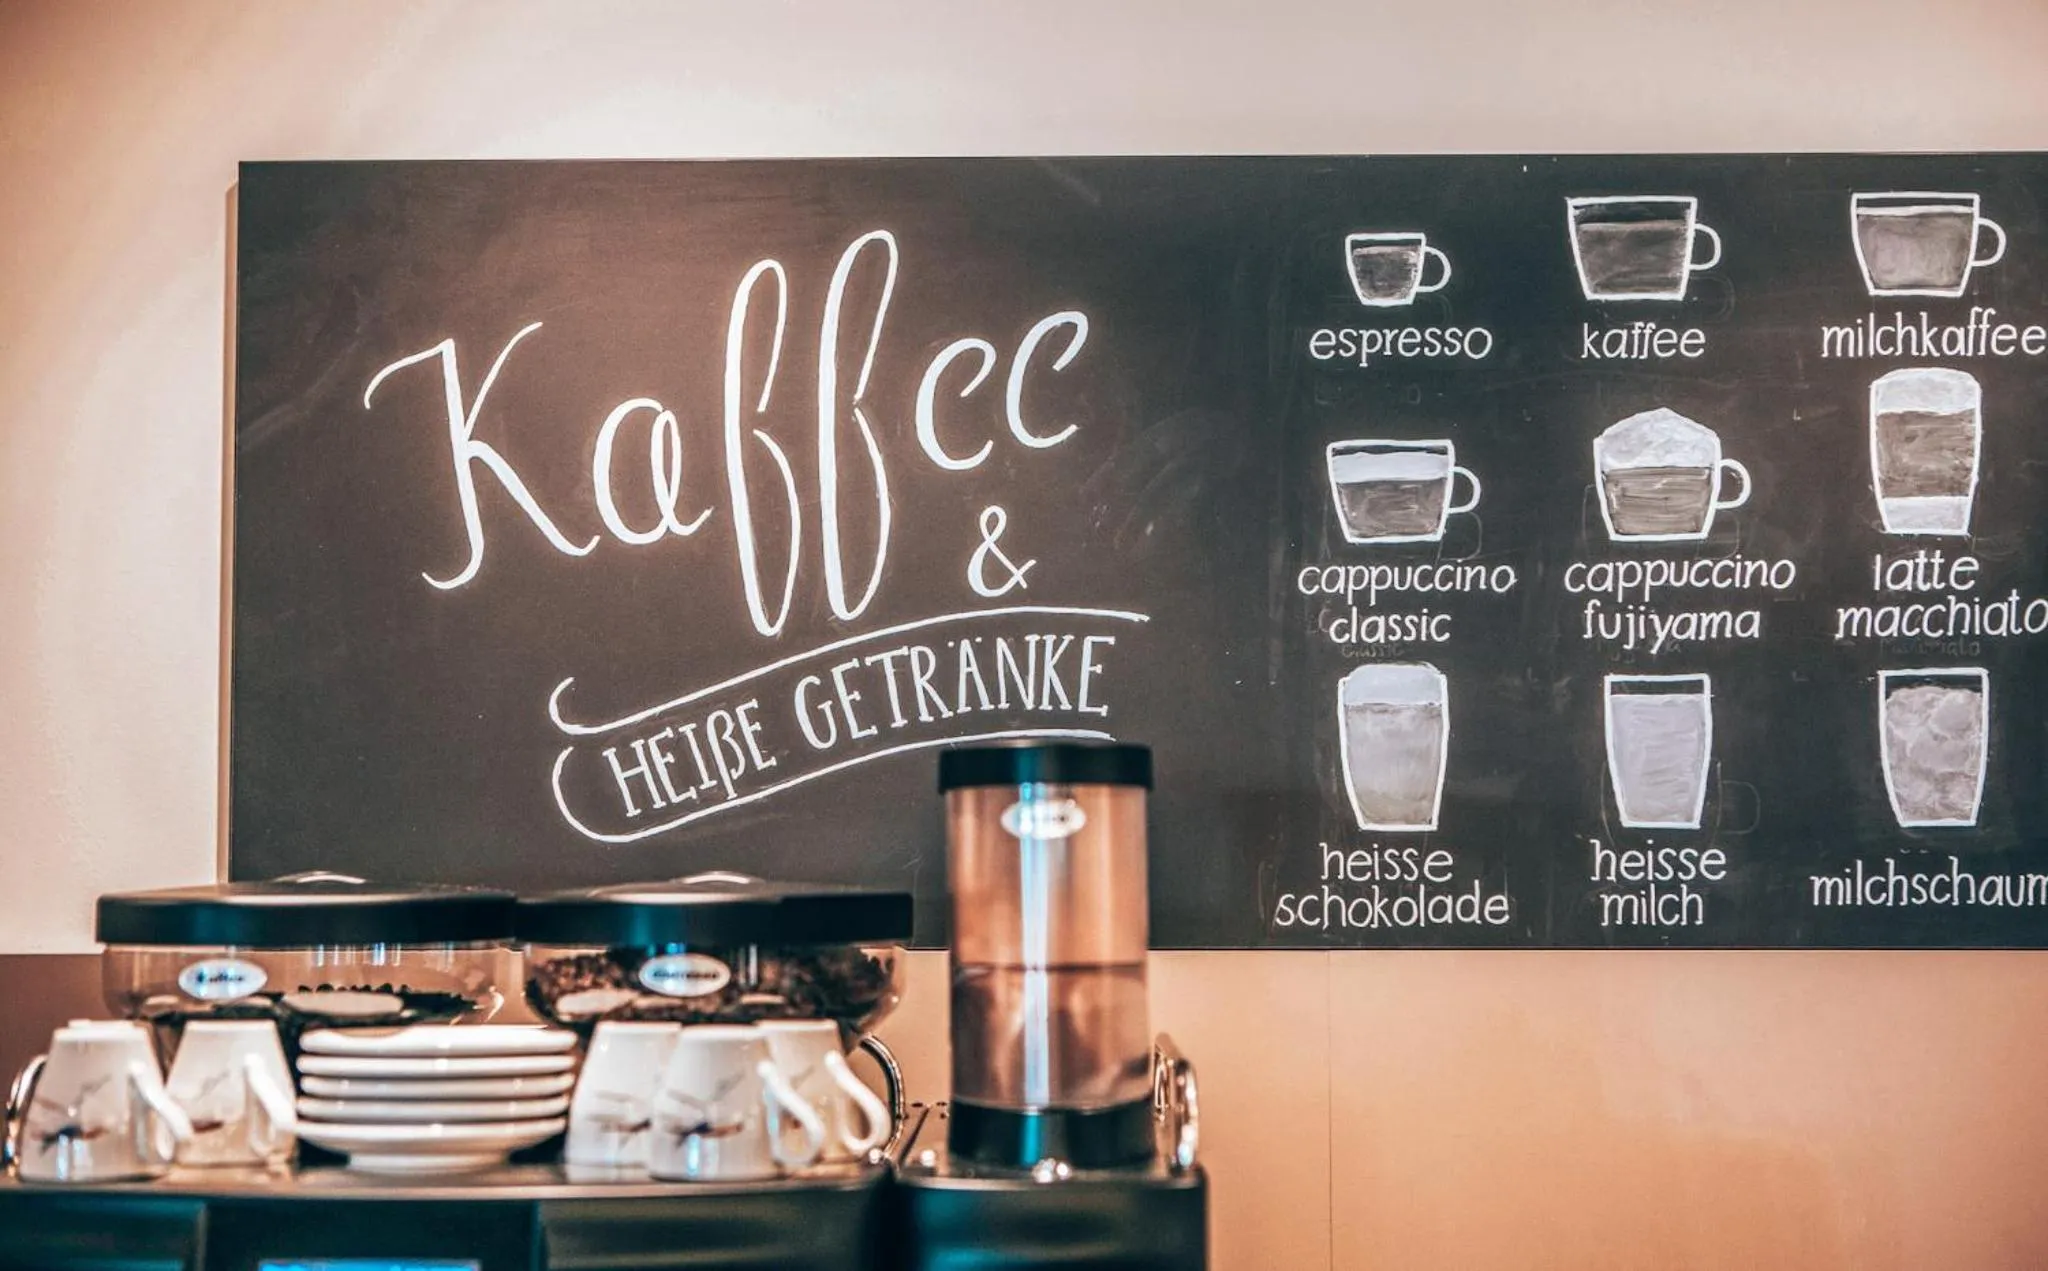 Kaffee
&
HEIßE GETRÄNKE
espresso
kaffee
milchkaffee
cappuccino
classic
cappuccino
fujiyama
latte
macchiato
heisse
schokolade
heisse
milch
milchschaum
Kaffee